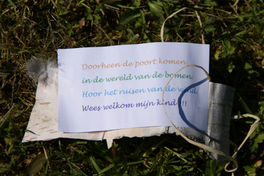 Doorheen de poort komen
in de wereld van de bomen
Hoor het ruisen van de wind
Wees welkom mijn kind !!